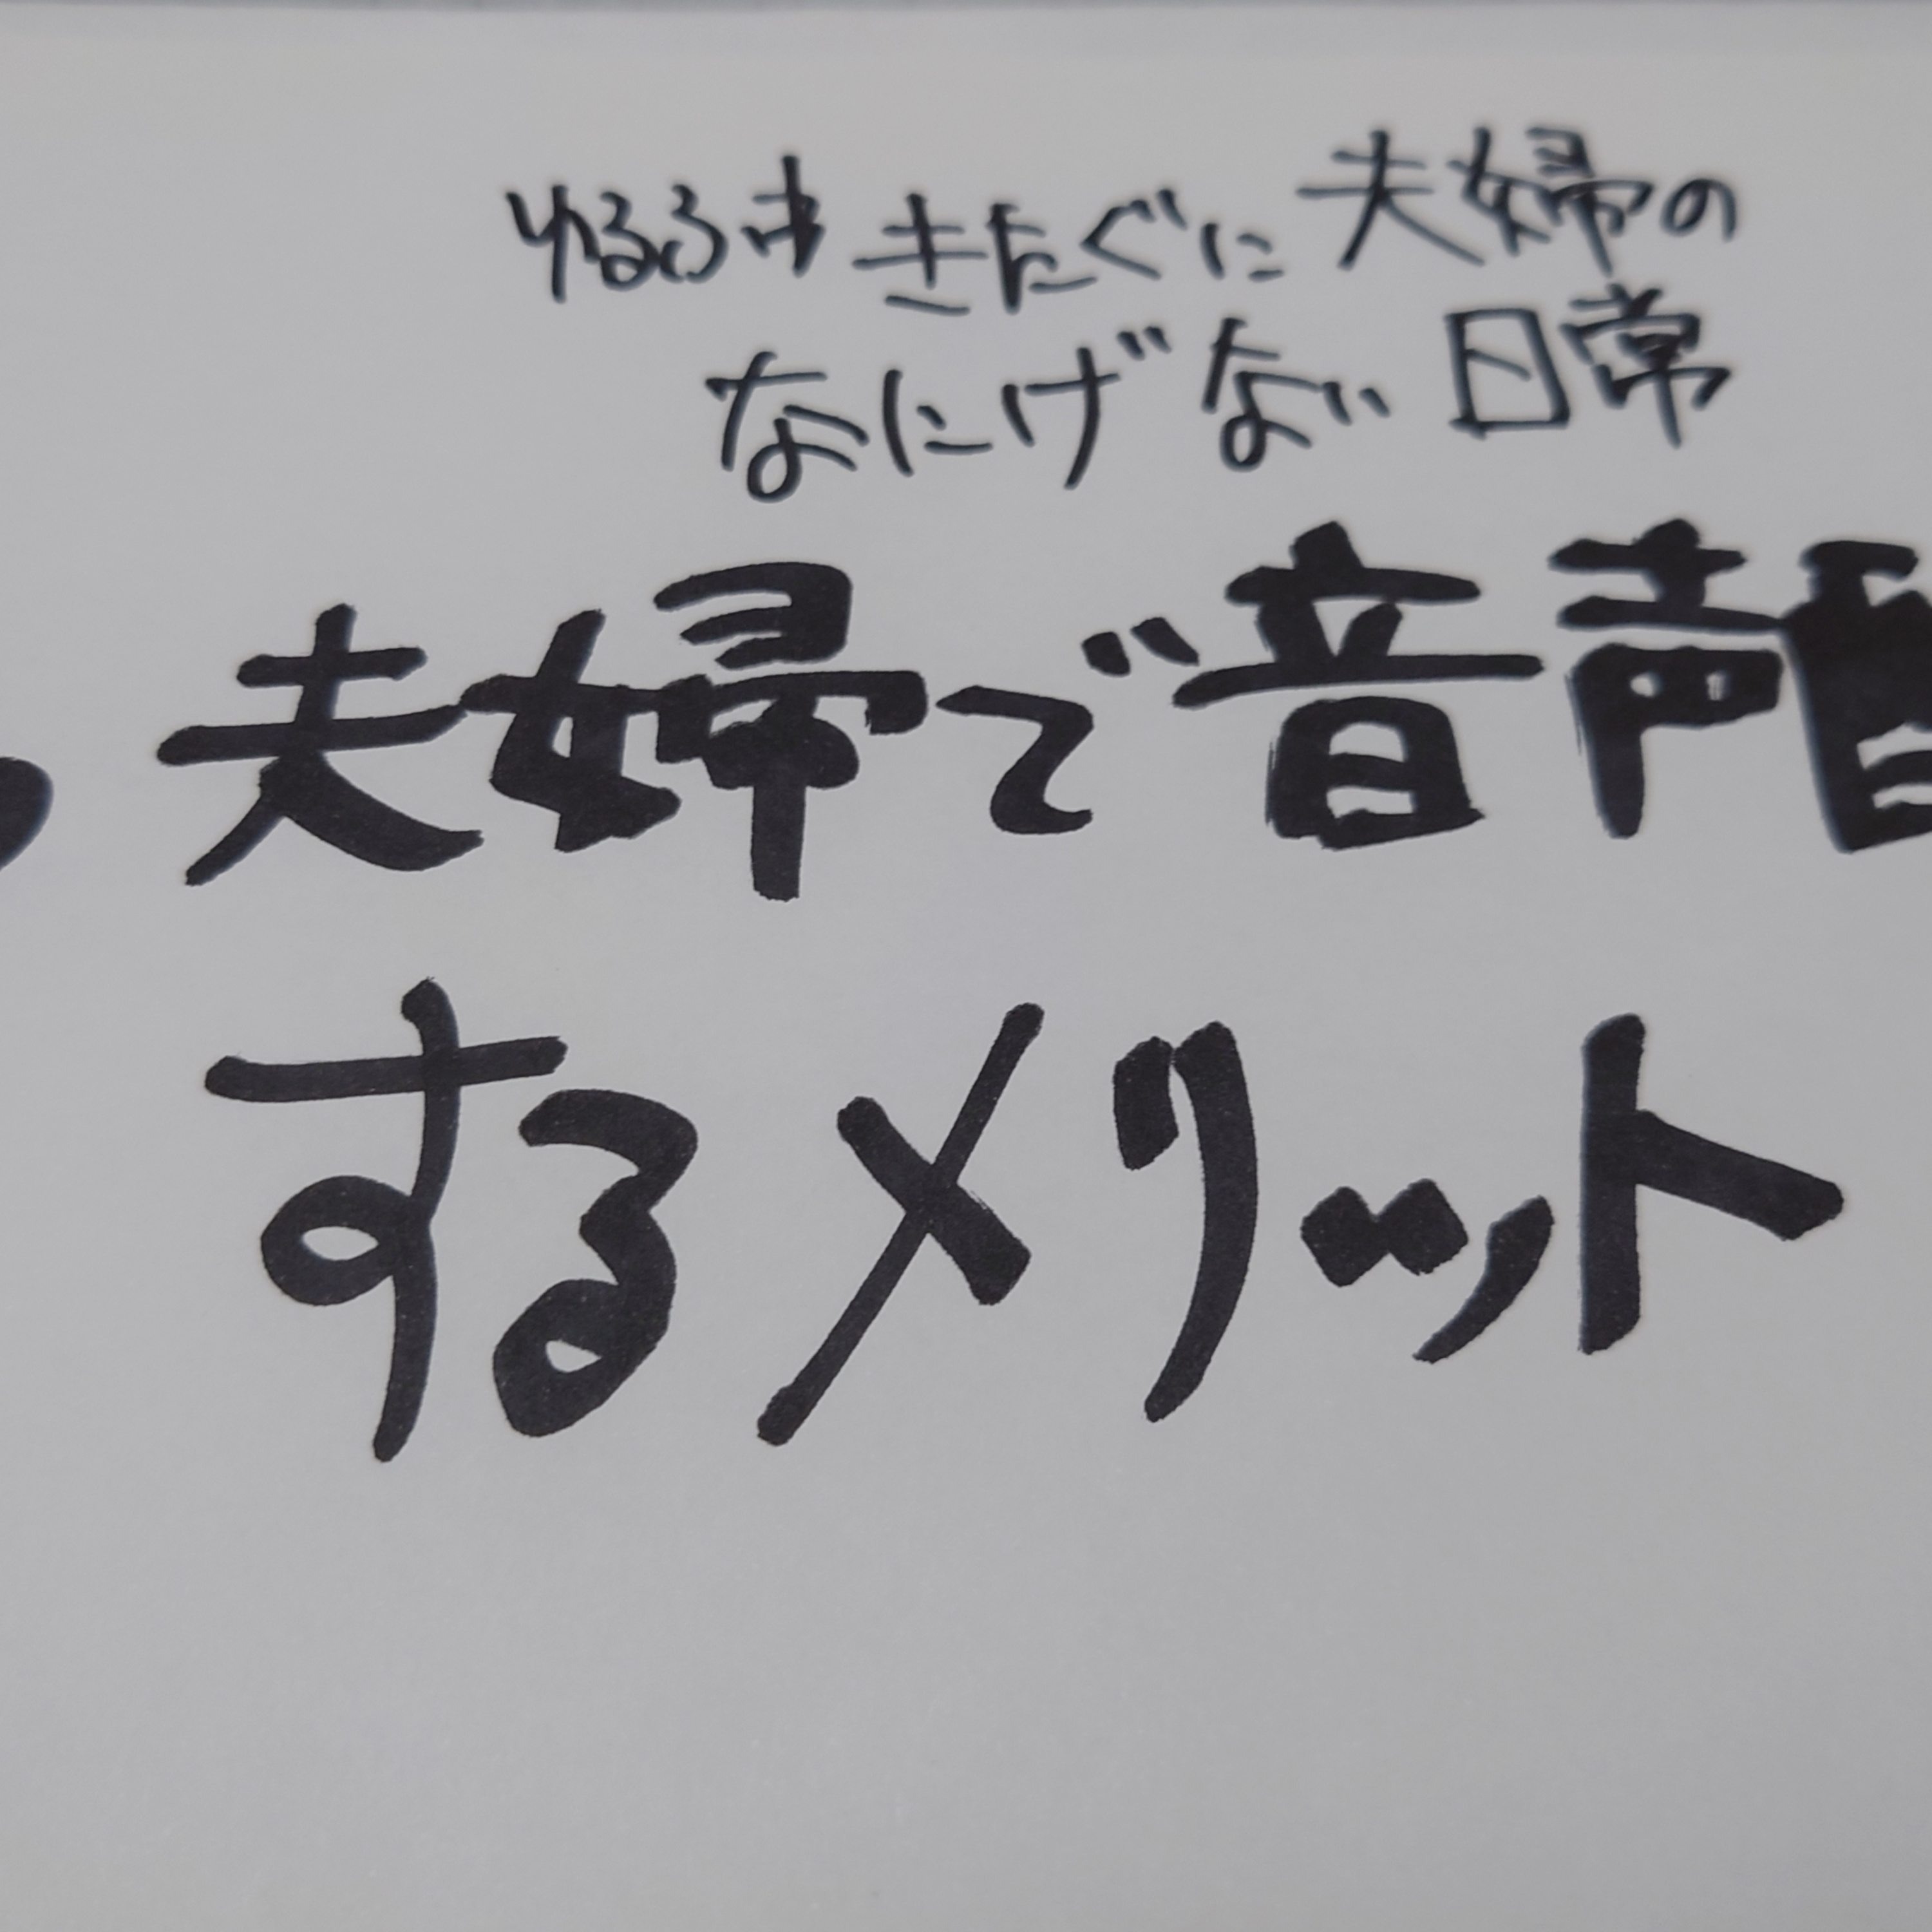 ゆるふわ きたぐに 夫婦の
なにげない 日常
夫婦で音声配
するメリット